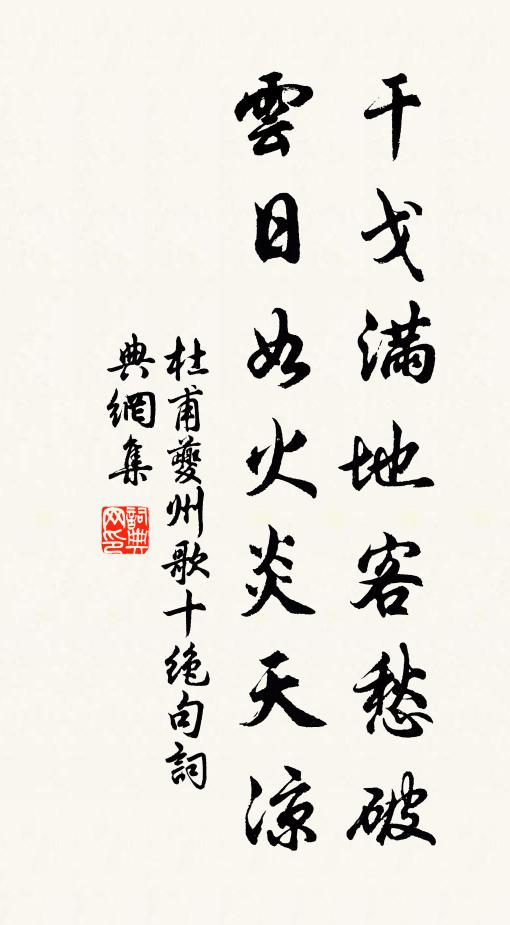 干戈滿地客愁破
雲日如火炎天涼
杜甫夔州歌十絕句詞
典網集
詞典
网印